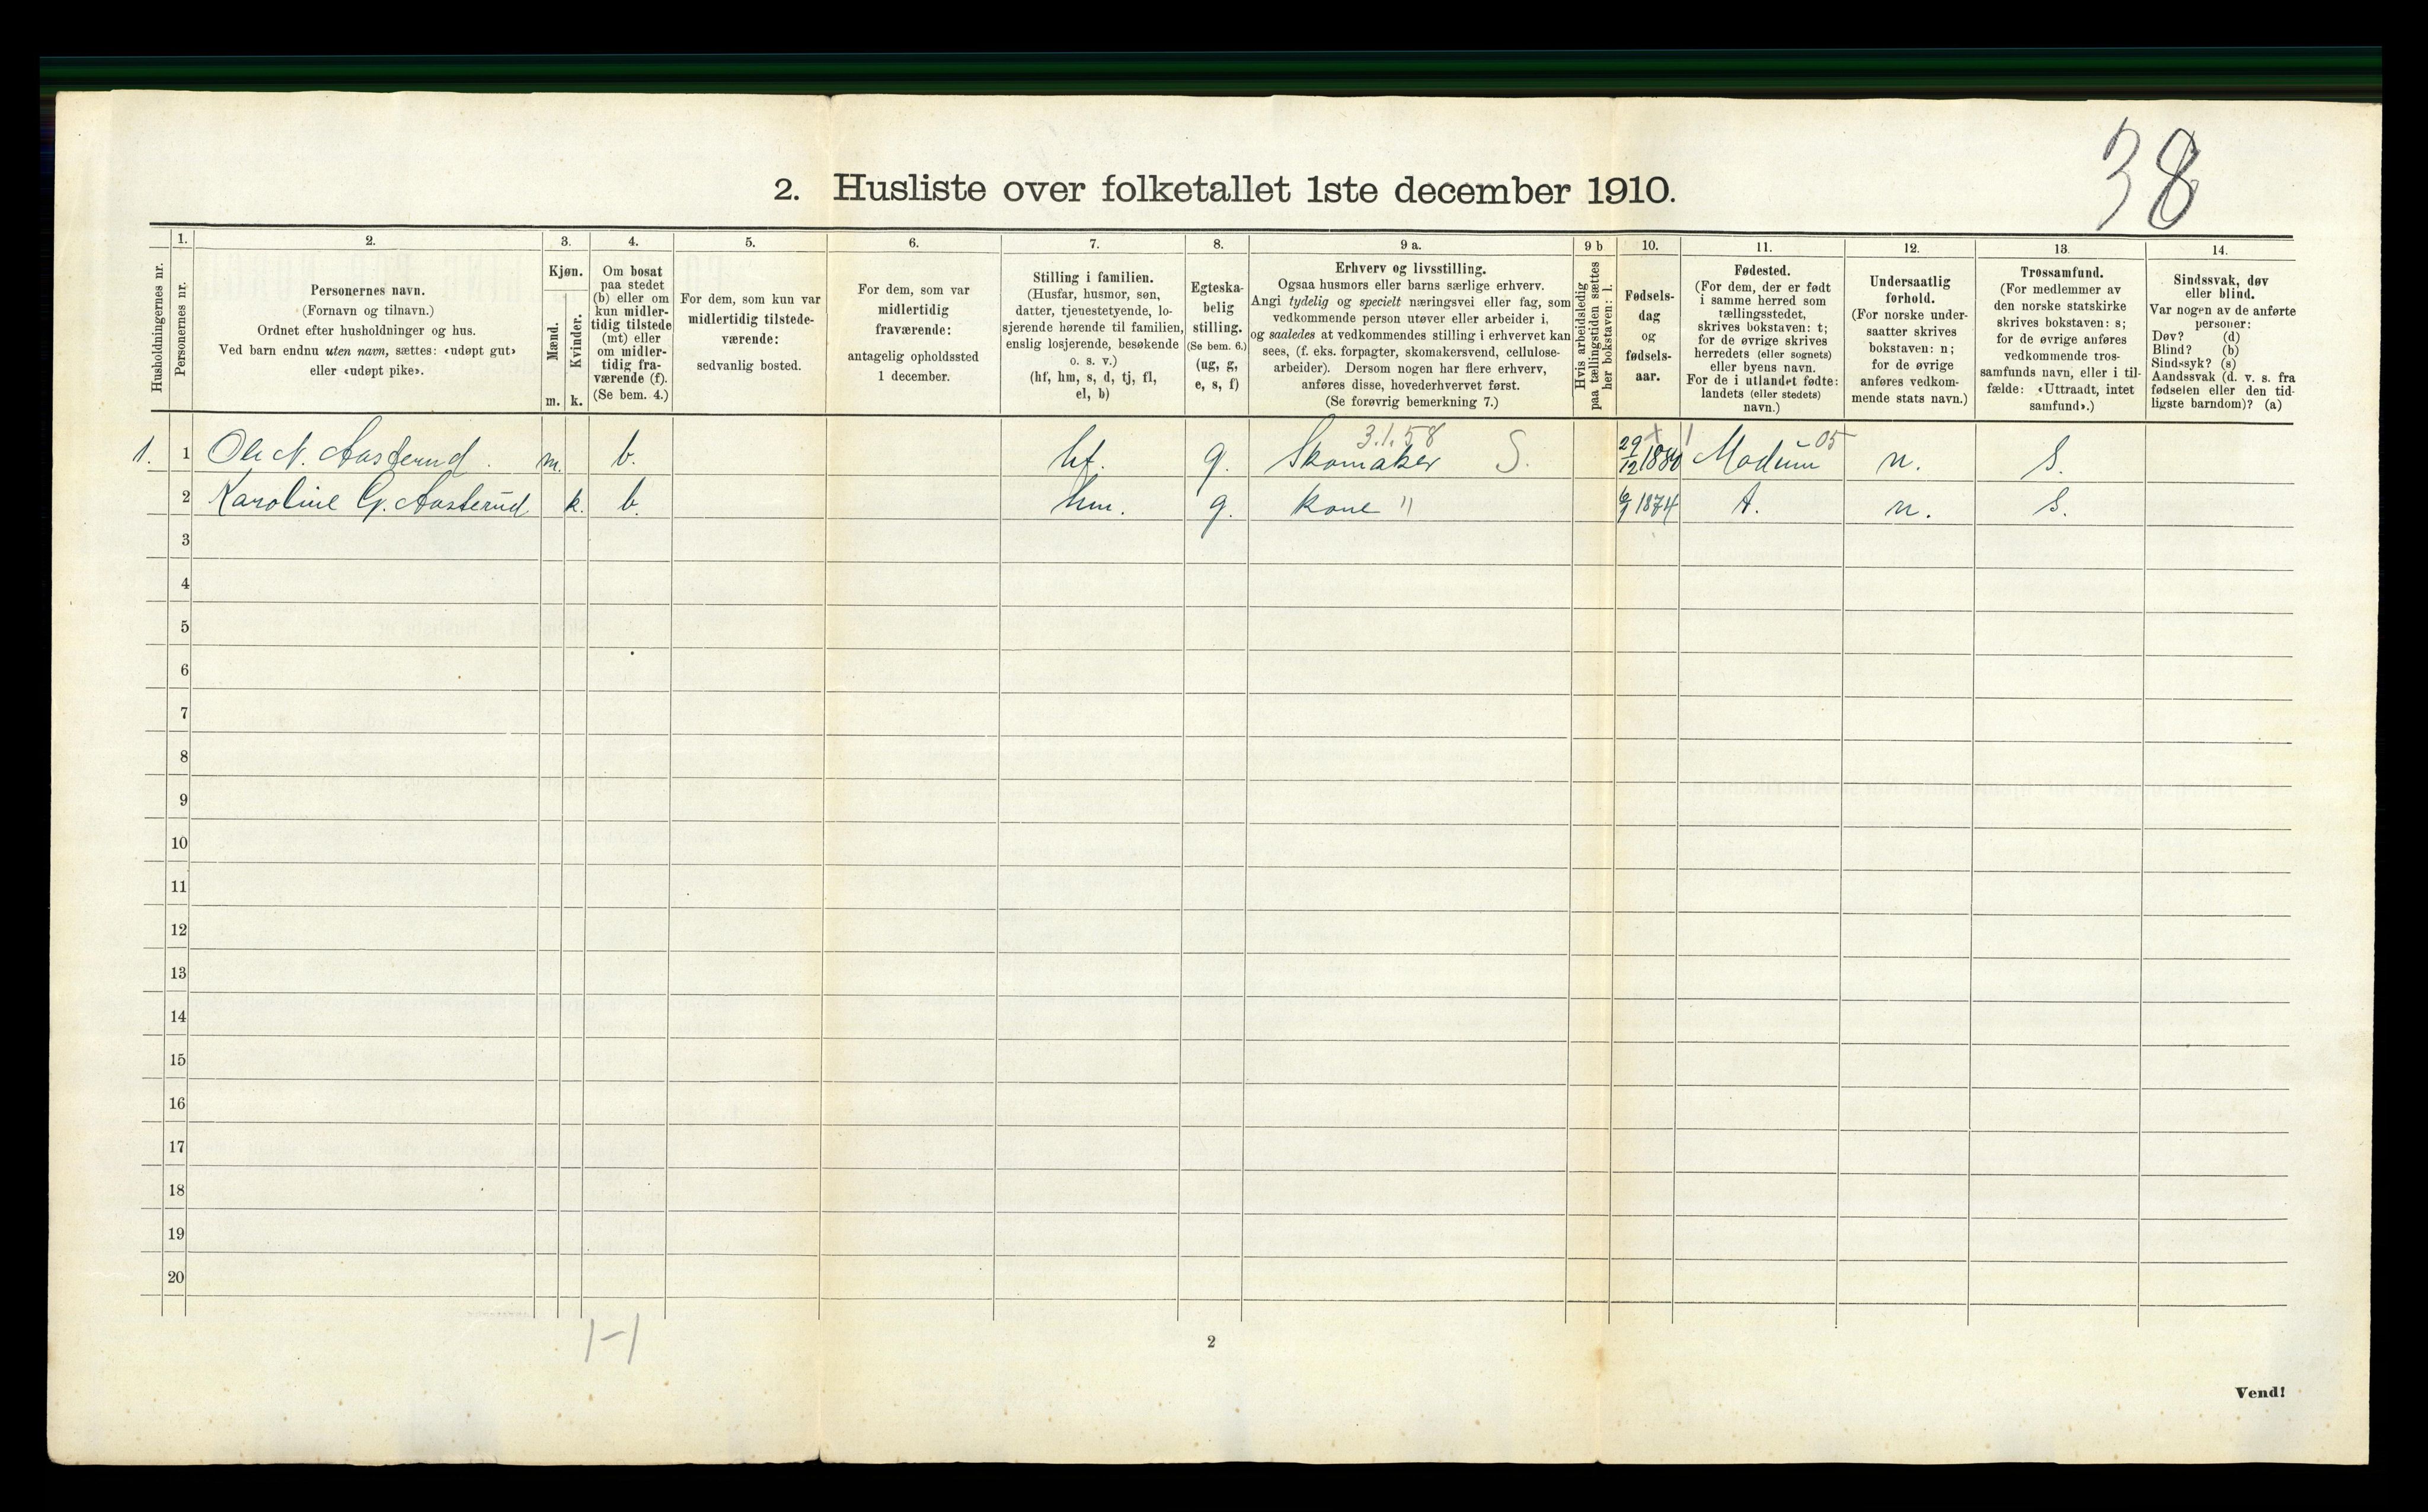 38
2. Husliste over folketallet 1ste december 1910.
Husholdningernes nr.
1.
Personernes nr.
2.
Personernes navn.
(Fornavn og tilnavn.)
Ordnet efter husholdninger og hus.
Ved barn endnu uten navn, sættes: «udøpt gut»
eller «udøpt pike».
3.
Kjøn.
Mænd.
Kvinder.
m. k.
4.
Om bosat
paa stedet
(b) eller om
kun midler-
tidig tilstede
(mt) eller
om midler-
tidig fra-
værende (f).
(Se bem. 4.)
5.
For dem, som kun var
midlertidig tilstede-
værende:
sedvanlig bosted.
6.
For dem, som var
midlertidig
fraværende:
antagelig opholdssted
1 december.
7.
Stilling i familien.
(Husfar, husmor, søn,
datter, tjenestetyende, lo-
sjerende hørende til familien,
enslig losjerende, besøkende
o. s. v.)
(hf, hm, s, d, tj, fl,
el, b)
8.
Egteska-
belig
stilling.
(Se bem. 6.)
(ug, g,
e, s, f)
9 a.
Erhverv og livsstilling.
Ogsaa husmors eller barns særlige erhverv.
Angi tydelig og specielt næringsvei eller fag, som
vedkommende person utøver eller arbeider i,
og saaledes at vedkommendes stilling i erhvervet kan
sees, (f. eks. forpagter, skomakersvend, cellulose-
arbeider). Dersom nogen har flere erhverv,
anføres disse, hovederhvervet først.
(Se forøvrig bemerkning 7.)
9 b
Hvis arbeidsledig
paa tællingstiden sættes
her bokstaven: l.
10.
Fødsels-
dag
og
fødsels-
aar.
11.
Fødested.
(For dem, der er født
i samme herred som
tællingsstedet,
skrives bokstaven: t;
for de øvrige skrives
herredets (eller sognets)
eller byens navn.
For de i utlandet fødte:
landets (eller stedets)
navn.)
12.
Undersaatlig
forhold.
(For norske under-
saatter skrives
bokstaven: n;
for de øvrige
anføres vedkom-
mende stats navn.)
13.
Trossamfund.
(For medlemmer av
den norske statskirke
skrives bokstaven: s;
for de øvrige anføres
vedkommende tros-
samfunds navn, eller i til-
fælde: «Uttraadt, intet
samfund».)
14.
Sindssvak, døv
eller blind.
Var nogen av de anførte
personer:
Døv? (d)
Blind? (b)
Sindssyk? (s)
Aandssvak (d. v. s. fra
fødselen eller den tid-
ligste barndom)? (a)
3.1.58 05
1. 1 Ole N. Aasterud. m. b. hf. g. Skomaker S. 29/12 Modum n. S.
2 Karoline G. Aasterud k. b. hm. g. kone " 1874 t. n. S.
3
4
5
6
7
8
9
10
11
12
13
14
15
16
17
18
19
20
1-1
2
Vend!